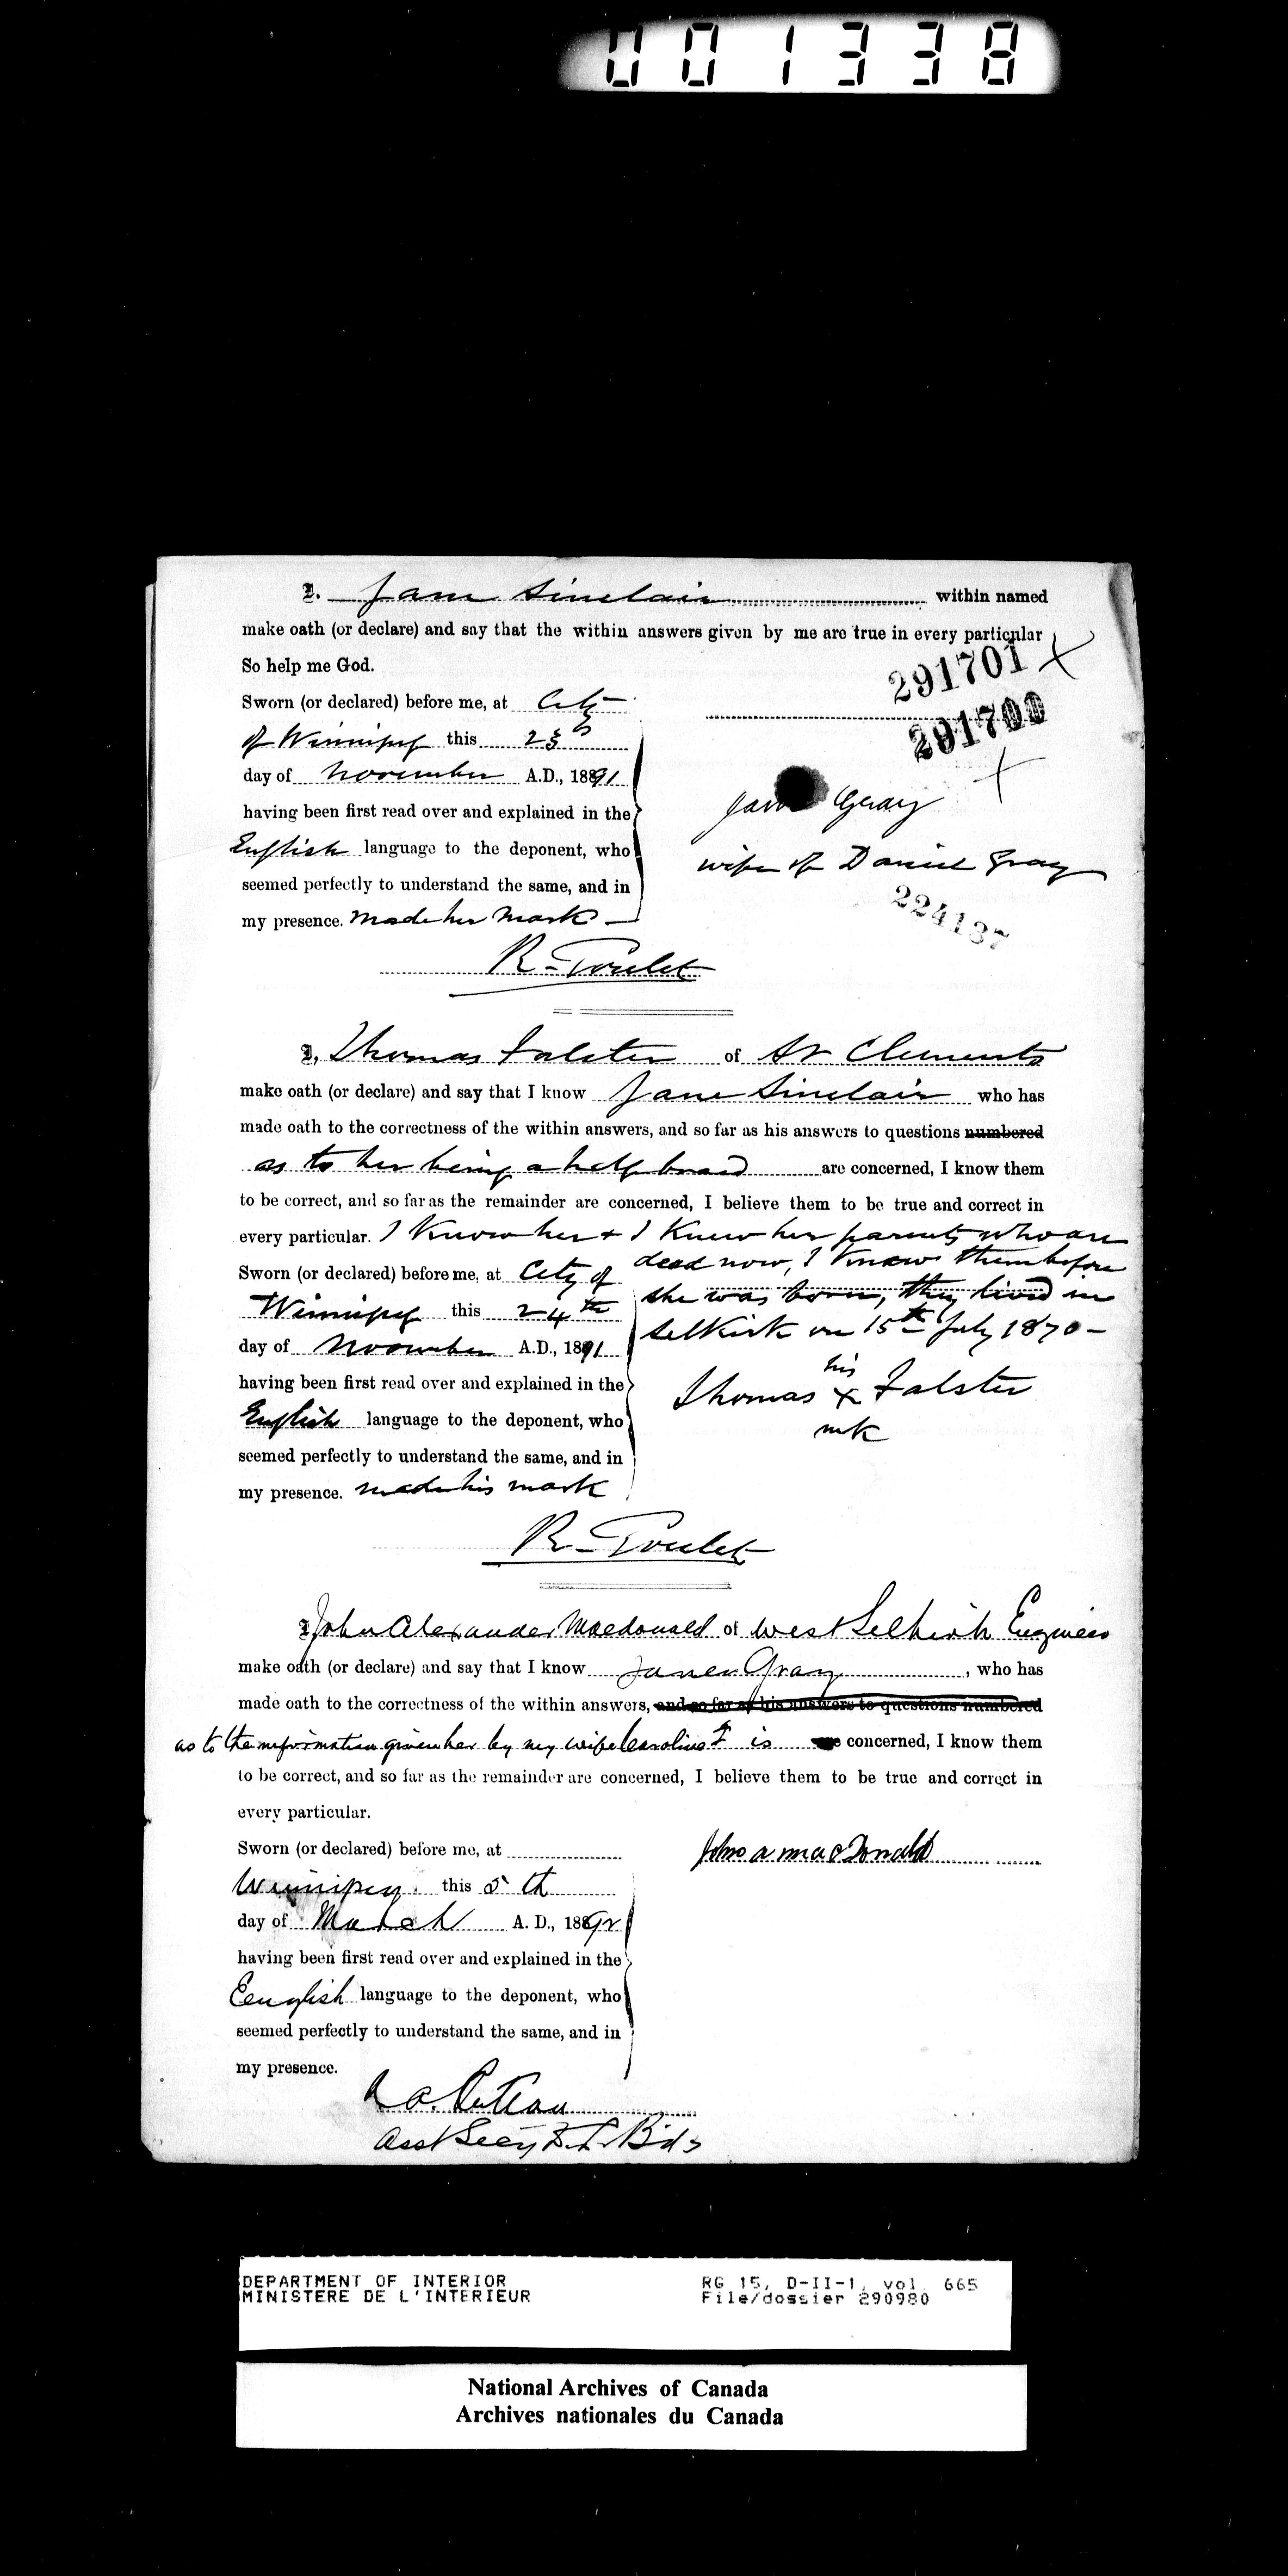 001338
I. Jane Sinclair within named
make oath (or declare) and say that the within answers given by me are true in every particular
So help me God.
291701 X
Sworn (or declared) before me, at City
291700
of Winnipeg this 23
day of November A.D., 1891
Jane Gray
having been first read over and explained in the
English language to the deponent, who
wife of Daniel Gray
seemed perfectly to understand the same, and in
224187
my presence. made her mark
R. Goulet
I, Thomas Falster of St Clements
make oath (or declare) and say that I know Jane Sinclair who has
made oath to the correctness of the within answers, and so far as his answers to questions numbered
as to her being a half breed are concerned, I know them
to be correct, and so far as the remainder are concerned, I believe them to be true and correct in
every particular. I know her + I knew her parents who are
dead now, I knew them before
Sworn (or declared) before me, at City of
she was born, they lived in
Winnipeg this 24th
Selkirk on 15th July 1870 -
day of November A.D., 1891
having been first read over and explained in the
Thomas his X mk Falster
English language to the deponent, who
seemed perfectly to understand the same, and in
my presence. made his mark
R. Goulet
I John Alexander Macdonald of West Selkirk Engineer
make oath (or declare) and say that I know Jane Gray, who has
made oath to the correctness of the within answers, and so far as his answers to questions numbered
as to the information given her by my wife Caroline is concerned, I know them
to be correct, and so far as the remainder are concerned, I believe them to be true and correct in
every particular.
Sworn (or declared) before me, at
John a macDonald
Winnipeg. this 5th
day of March A. D., 1892
having been first read over and explained in the
English language to the deponent, who
seemed perfectly to understand the same, and in
my presence.
Asst Secy
DEPARTMENT OF INTERIOR
MINISTERE DE L'INTERIEUR
RG 15, D-II-1, vol. 665
File/dossier 290980
National Archives of Canada
Archives nationales du Canada